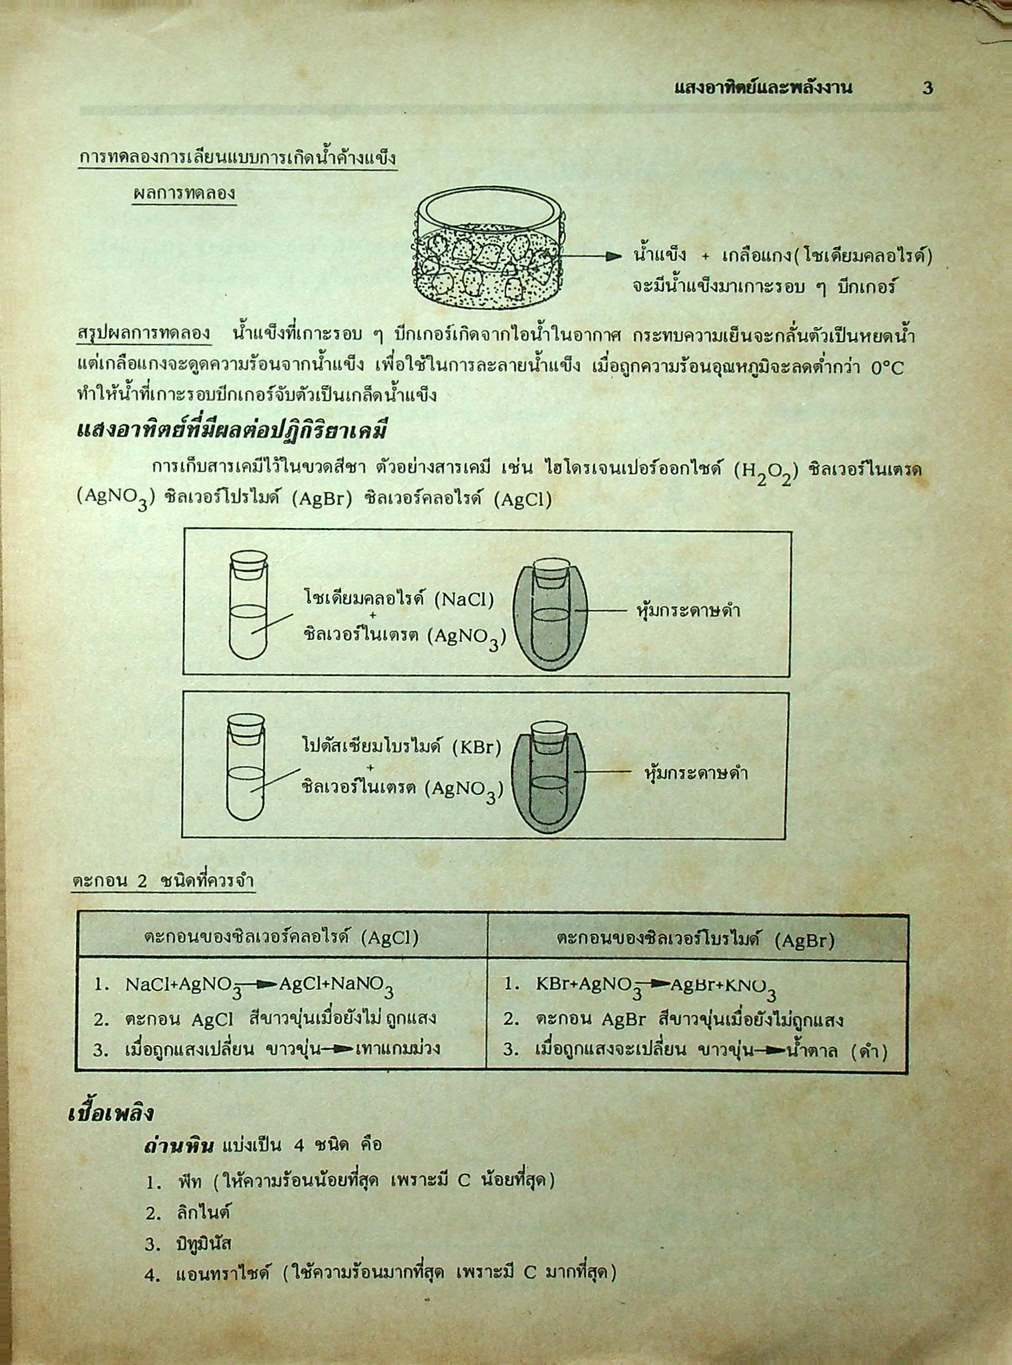 แสงอาทิตย์และพลังงาน 3
การทดลองการเลียนแบบการเกิดน้ำค้างแข็ง
ผลการทดลอง
น้ำแข็ง + เกลือแกง(โซเดียมคลอไรด์)
จะมีน้ำแข็งมาเกาะรอบ ๆ บีกเกอร์
สรุปผลการทดลอง น้ำแข็งที่เกาะรอบ ๆ บีกเกอร์เกิดจากไอน้ำในอากาศ กระทบความเย็นจะกลั่นตัวเป็นหยดน้ำ
แต่เกลือแกงจะดูดความร้อนจากน้ำแข็ง เพื่อใช้ในการละลายน้ำแข็ง เมื่อถูกความร้อนอุณหภูมิจะลดต่ำกว่า 0°C
ทำให้น้ำที่เกาะรอบบีกเกอร์จับตัวเป็นเกล็ดน้ำแข็ง
แสงอาทิตย์ที่มีผลต่อปฏิกิริยาเคมี
การเก็บสารเคมีไว้ในขวดสีชา ตัวอย่างสารเคมี เช่น ไฮโดรเจนเปอร์ออกไซด์ (H₂O₂) ซิลเวอร์ไนเตรด
(AgNO₃) ซิลเวอร์โปรไมด์ (AgBr) ซิลเวอร์คลอไรด์ (AgCl)
โซเดียมคลอไรด์ (NaCl)
+
ซิลเวอร์ไนเตรต (AgNO₃)
หุ้มกระดาษดำ
โปตัสเซียมโบรไมด์ (KBr)
+
ซิลเวอร์ไนเตรต (AgNO₃)
หุ้มกระดาษดำ
ตะกอน 2 ชนิดที่ควรจำ
ตะกอนของซิลเวอร์คลอไรด์ (AgCl)
1. NaCl+AgNO₃→AgCl+NaNO₃
2. ตะกอน AgCl สีขาวขุ่นเมื่อยังไม่ถูกแสง
3. เมื่อถูกแสงเปลี่ยน ขาวขุ่น→เทาแกมม่วง
ตะกอนของซิลเวอร์โบรไมด์ (AgBr)
1. KBr+AgNO₃→AgBr+KNO₃
2. ตะกอน AgBr สีขาวขุ่นเมื่อยังไม่ถูกแสง
3. เมื่อถูกแสงจะเปลี่ยน ขาวขุ่น→น้ำตาล (ดำ)
เชื้อเพลิง
ถ่านหิน แบ่งเป็น 4 ชนิด คือ
1. พีท (ให้ความร้อนน้อยที่สุด เพราะมี C น้อยที่สุด)
2. ลิกไนต์
3. บิทูมินัส
4. แอนทราไซด์ (ใช้ความร้อนมากที่สุด เพราะมี C มากที่สุด)